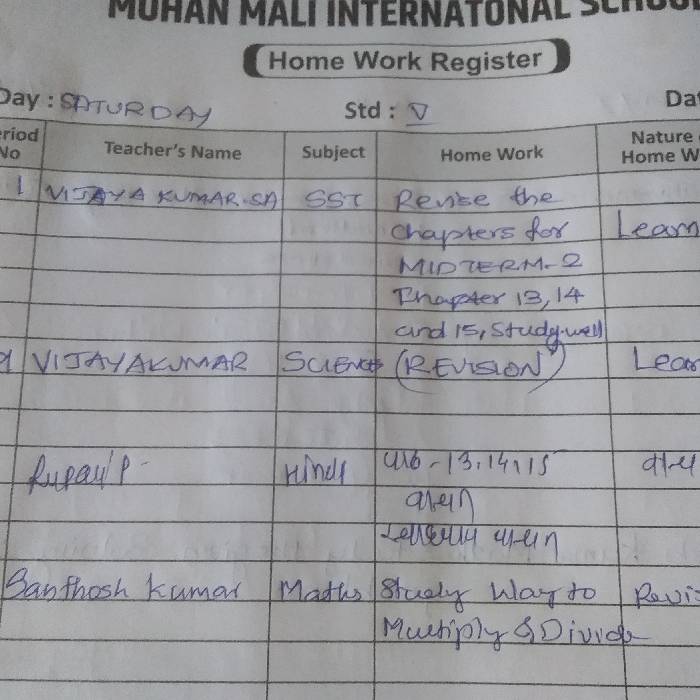 MOHAN MALI INTERNATONAL SCHOOL
Home Work Register
Day : SATURDAY Std : V Da
eriod No Teacher's Name Subject Home Work Nature Home W
1 VIJAYA KUMAR.SA SST Revise the
chapters for Learn
MIDTERM-2
Chapter 13, 14
and 15, Study well
VIJAYAKUMAR SCIENCE (REVISION) Lear
Hindi 13, 14, 15
Santhosh Kumar Maths Study Way to Revi
Multiply & Divide